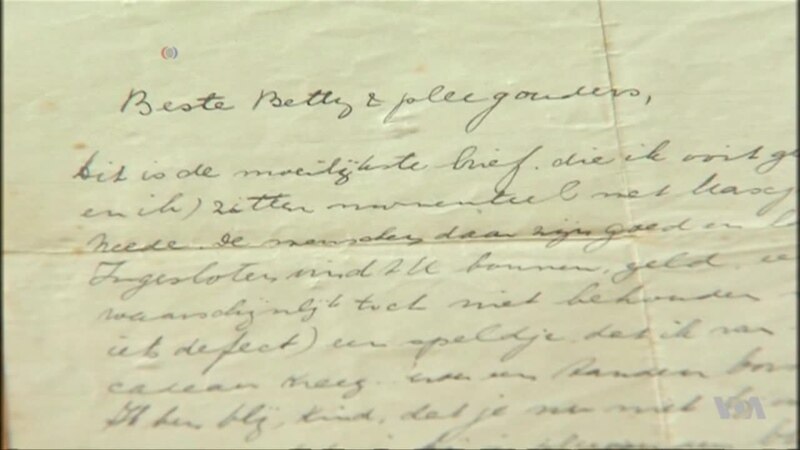 Beste Betty & pleegouders,
Dit is de moeilijkste brief, die ik ooit
en ik) zitten momenteel met
Neede. De menschen daar zijn goed en
Ingesloten vind U bonnen, geld,
waarschijnlijk toch niet behouden
iets defect) een speldje dat ik van
cadeau kreeg. een
Ik ben blij, kind, dat je nu met
VOA